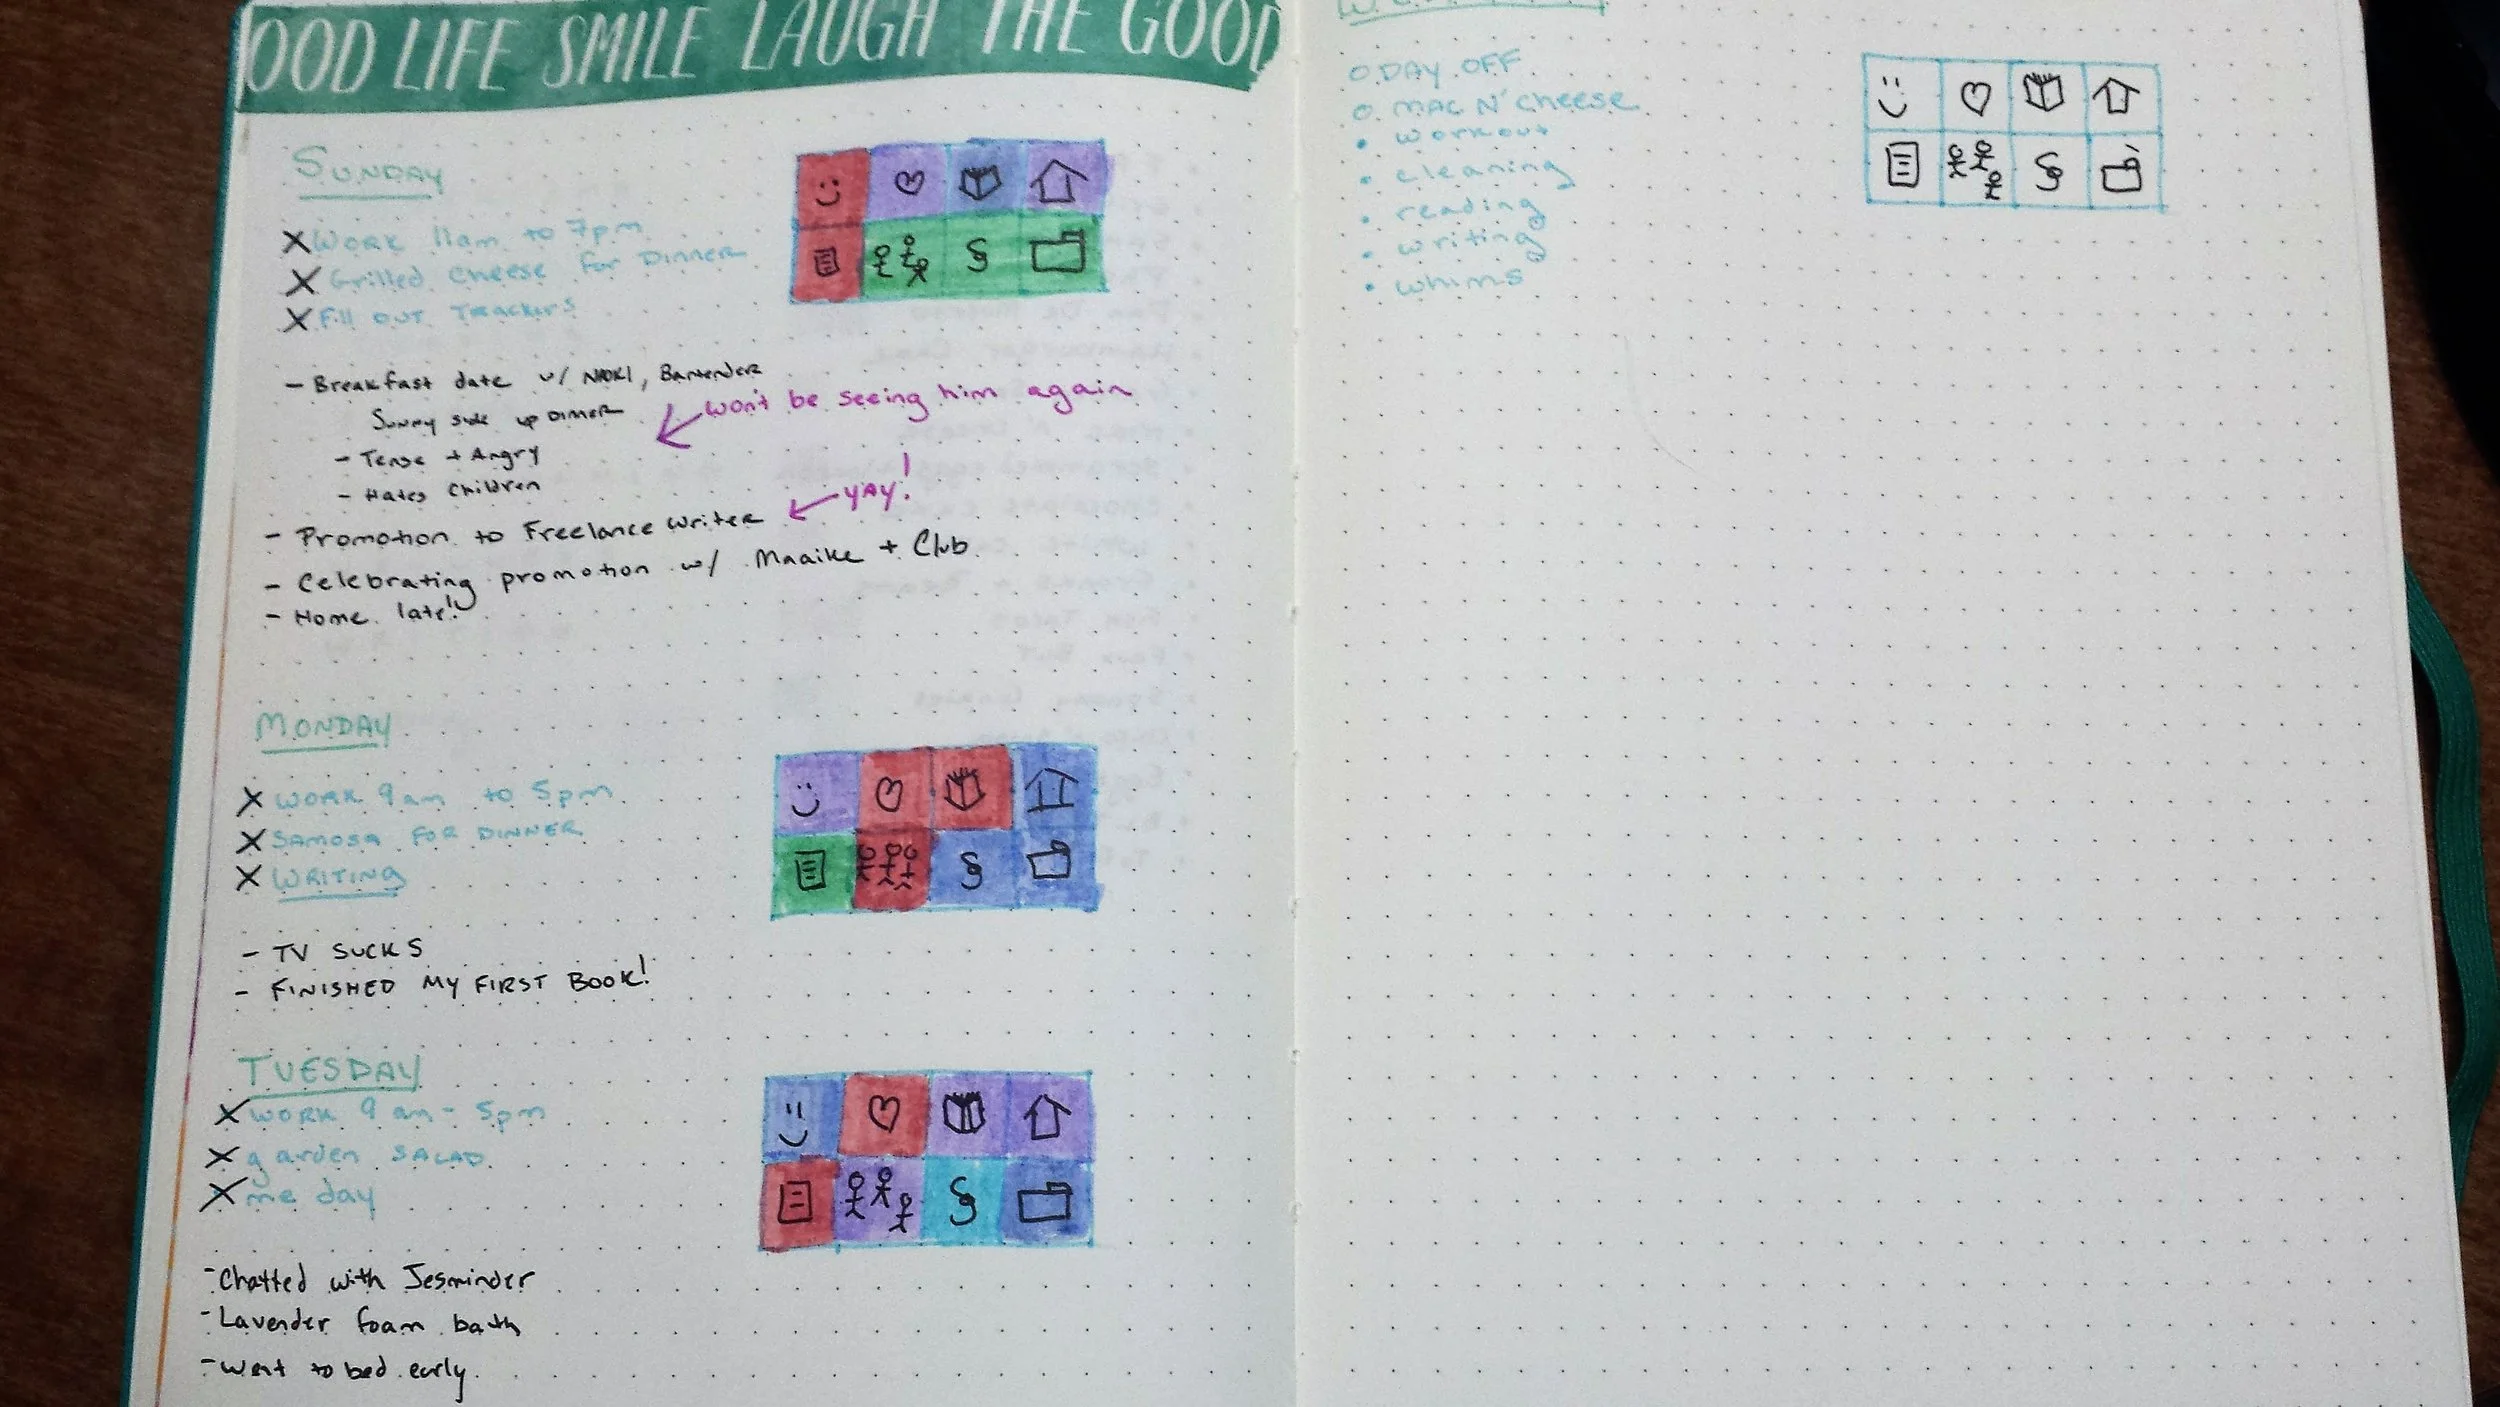 OOD LIFE SMILE LAUGH THE GOOD
SUNDAY
X WORK 11am to 7pm
X Grilled cheese for DINNER
X Fill OUT TRACKERS
- Breakfast date w/ NAOKI, Bartender
Sunny side up DINNER
- Tense + Angry
- Hates Children
won't be seeing him again
- Promotion to Freelance writer
YAY!
- Celebrating promotion w/ Maaike + Club
- Home late!
MONDAY
X WORK 9am to 5pm
X SAMOSA FOR DINNER
X WRITING
- TV SUCKS
- FINISHED MY FIRST BOOK!
TUESDAY
X WORK 9am - 5pm
X garden SALAD
X me day
- Chatted with Jesminder
- Lavender foam bath
- Went to bed early
O DAY OFF
O MAC N' cheese
• workout
• cleaning
• reading
• writing
• whims